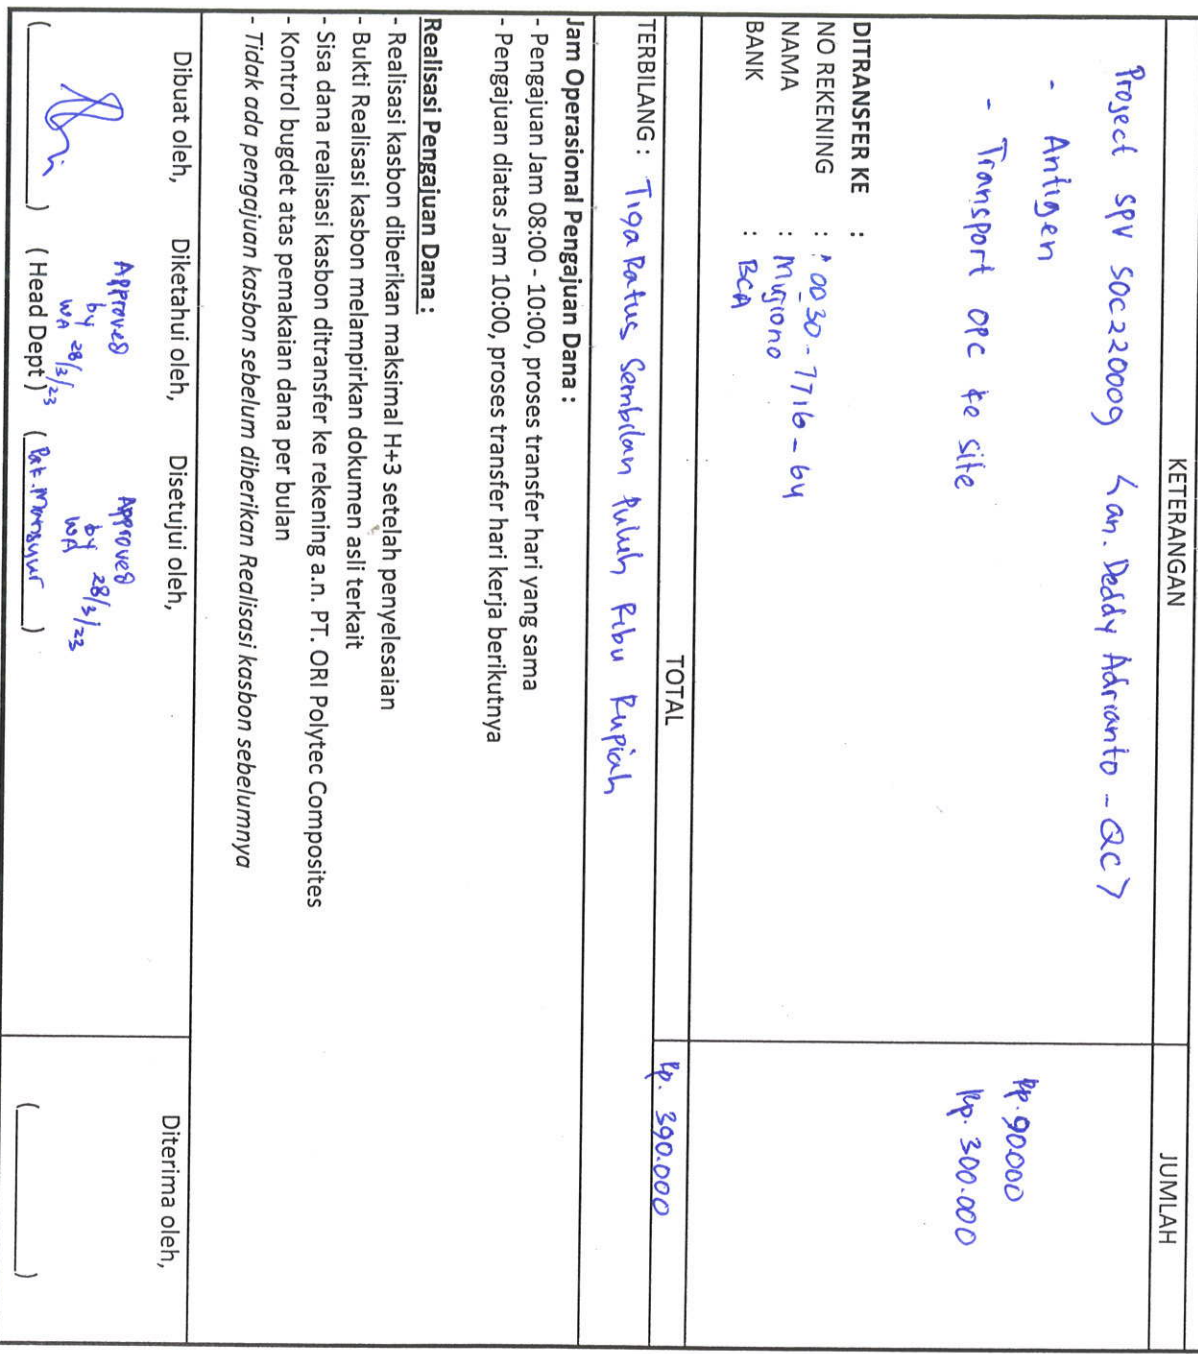 KETERANGAN JUMLAH
Project SPV SOC220009 <an. Deddy Adrianto - QC>
- Antigen Rp. 90.000
- Transport OPC ke site Rp. 300.000
DITRANSFER KE :
NO REKENING : 0030-7716-64
NAMA : Mujiono
BANK : BCA
TOTAL Rp. 390.000
TERBILANG : Tiga Ratus Sembilan Puluh Ribu Rupiah
Jam Operasional Pengajuan Dana :
- Pengajuan Jam 08:00 - 10:00, proses transfer hari yang sama
- Pengajuan diatas Jam 10:00, proses transfer hari kerja berikutnya
Realisasi Pengajuan Dana :
- Realisasi kasbon diberikan maksimal H+3 setelah penyelesaian
- Bukti Realisasi kasbon melampirkan dokumen asli terkait
- Sisa dana realisasi kasbon ditransfer ke rekening a.n. PT. ORI Polytec Composites
- Kontrol bugdet atas pemakaian dana per bulan
- Tidak ada pengajuan kasbon sebelum diberikan Realisasi kasbon sebelumnya
Dibuat oleh, Diketahui oleh, Disetujui oleh, Diterima oleh,
Approved
by
WA 28/3/23
Approved
by
WA 28/3/23
(________) ( Head Dept ) ( Pak. Mansyur ) (________)